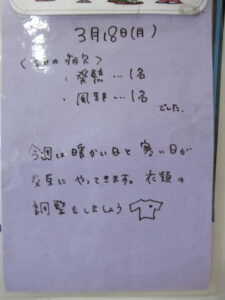 3月18日(月)
<今日の病欠>
・発熱…1名
・風邪…1名
でした。
今週は暖かい日と寒い日が
交互にやってきます。衣類の
調整をしましょう